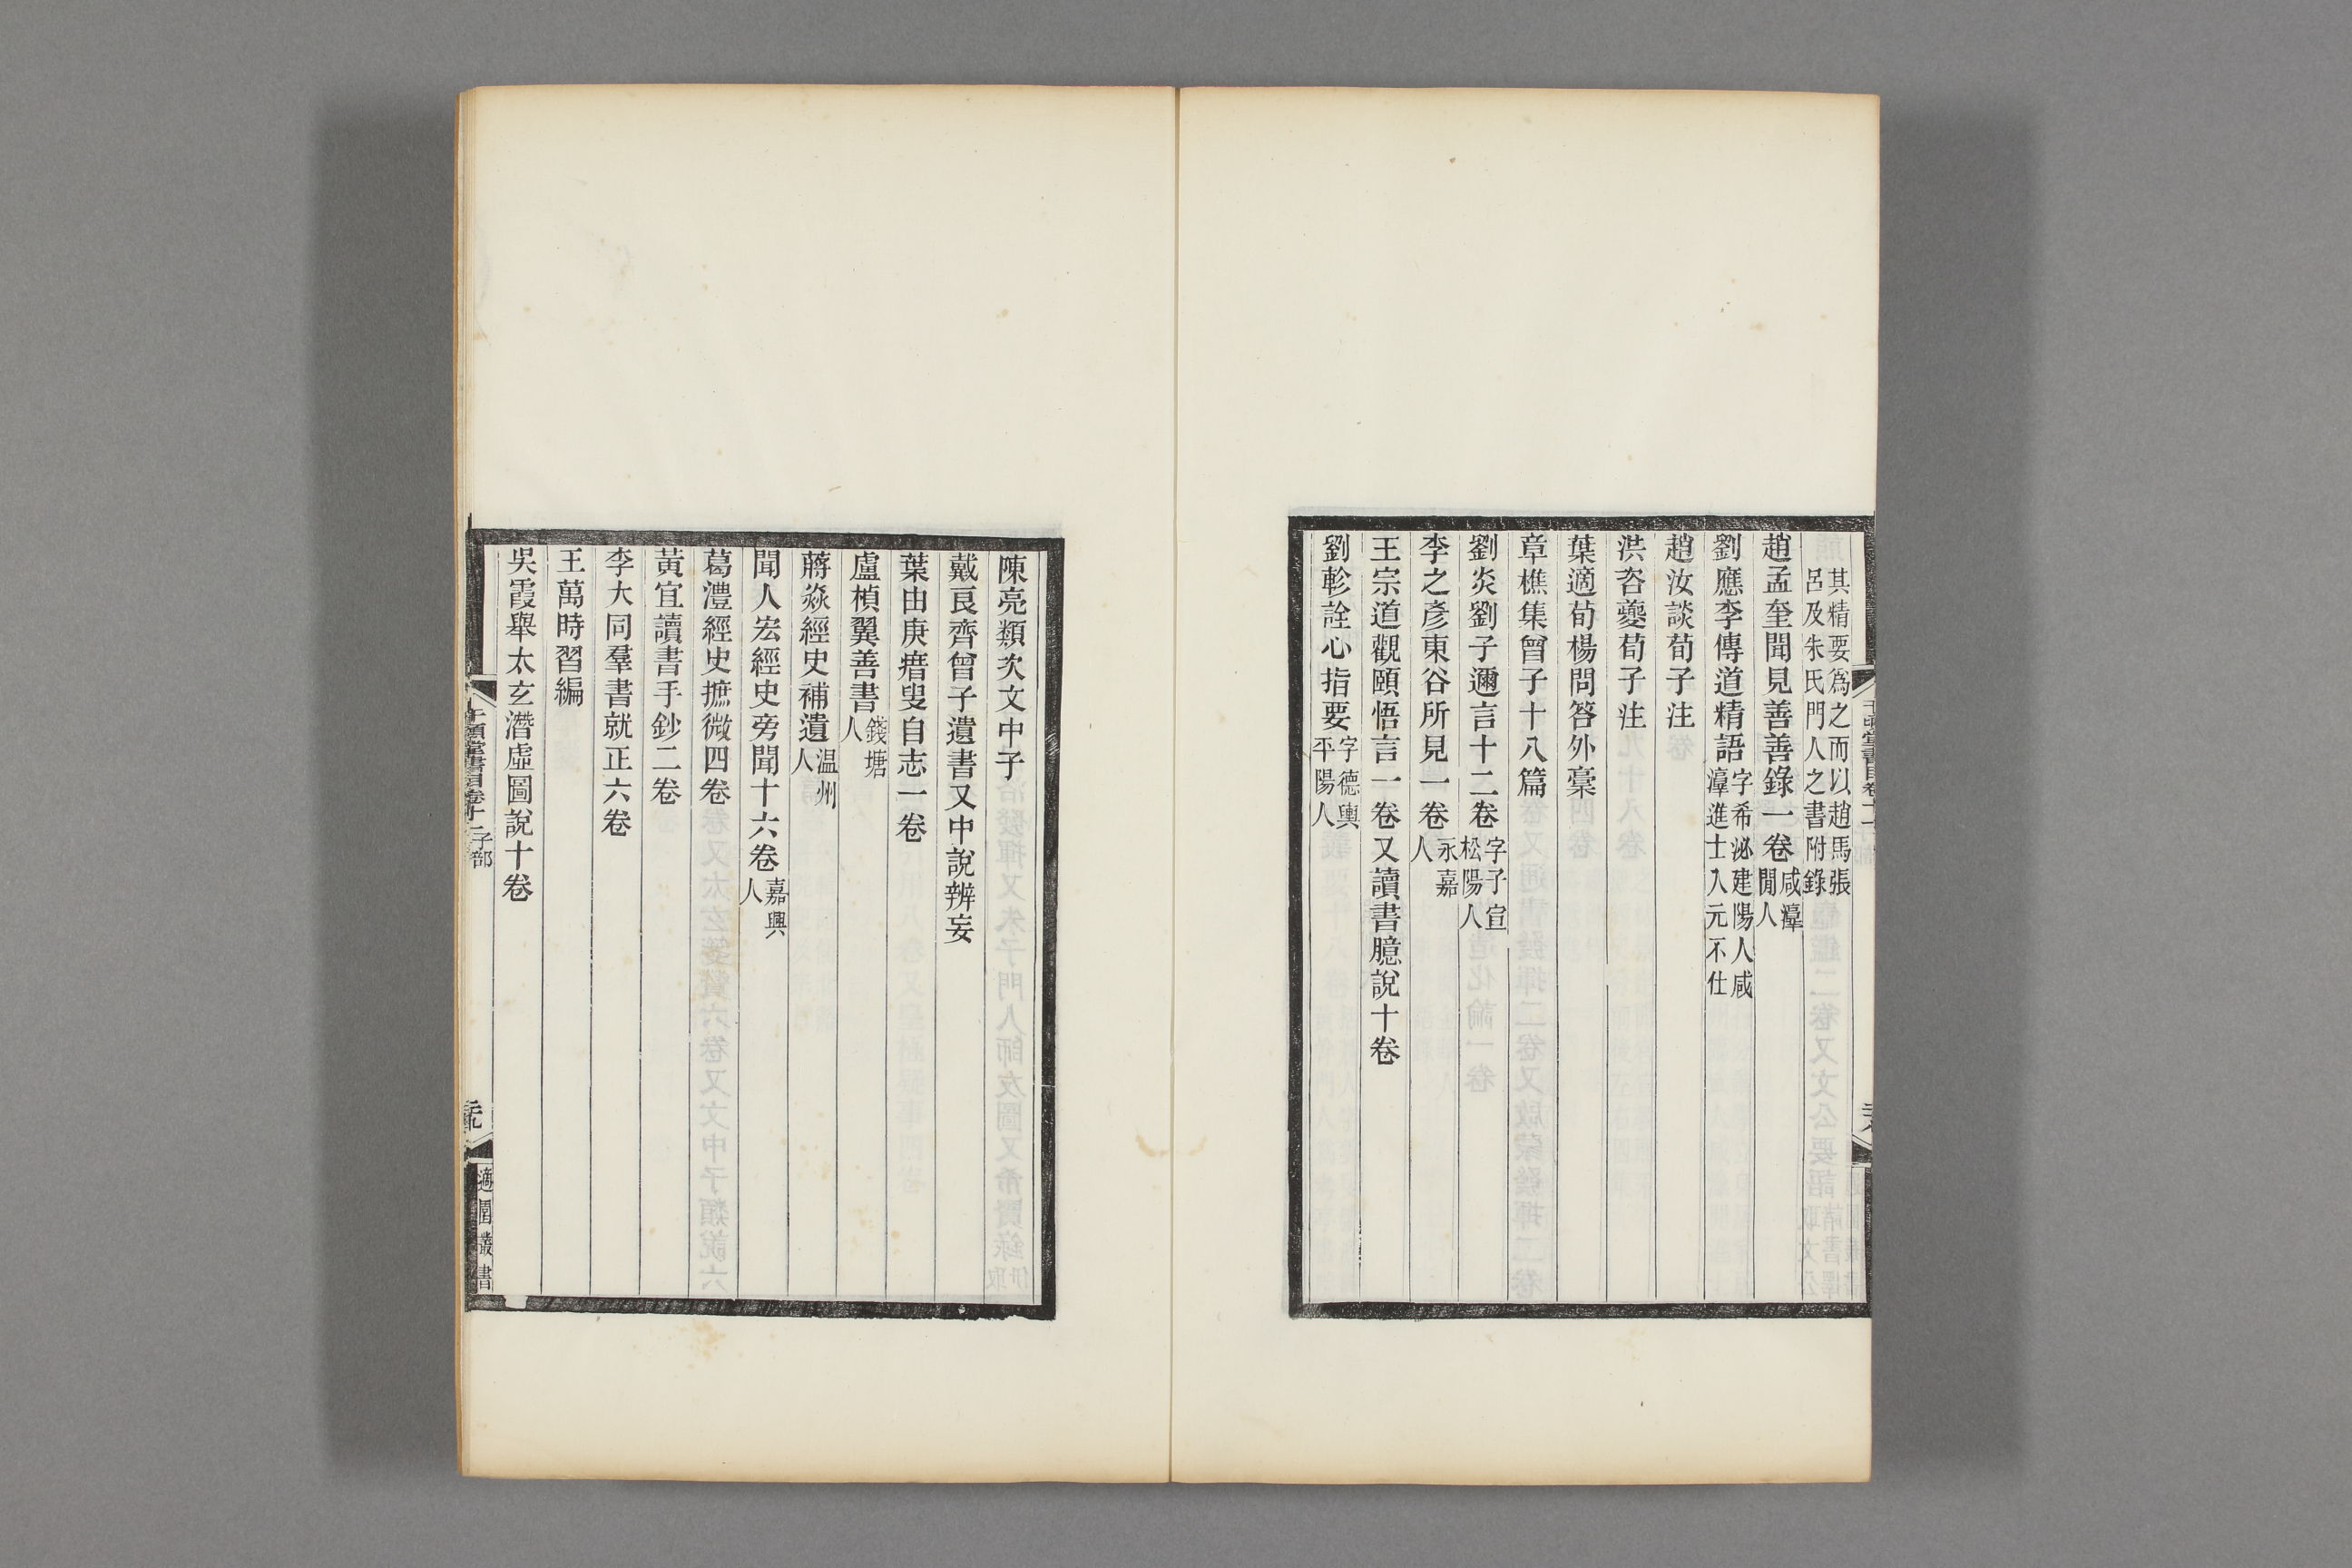 其精要爲之而以趙馬張
呂及朱氏門人之書附錄
趙孟奎聞見善善錄一卷咸漳閒人
劉應李傳道精語字希泌建陽人咸漳進士入元不仕
趙汝談荀子注
洪咨夔荀子注
葉適荀楊問答外稾
章樵集曾子十八篇
劉炎劉子邇言十二卷字子宣松陽人
李之彥東谷所見一卷永嘉人
王宗道觀頤悟言一卷又讀書臆說十卷
劉軫詮心指要字德輿平陽人
陳亮類次文中子
戴良齊曾子遺書又中說辨妄
葉由庚瘖叟自志一卷
盧楨翼善書錢塘人
蔣焱經史補遺温州人
聞人宏經史旁聞十六卷嘉興人
葛澧經史摭微四卷
黃宜讀書手鈔二卷
李大同羣書就正六卷
王萬時習編
吳霞舉太玄潛虛圖說十卷
千頃堂書目卷十一 子部
適園叢書